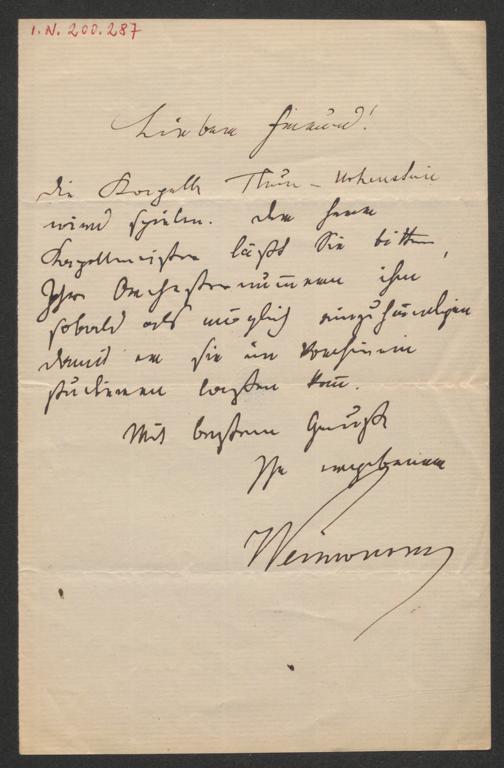 I.N. 200.287
Lieber Freund!
Die Kapelle Thun-Hohenstein
wird spielen. Der Herr
Kapellmeister läßt Sie bitten,
Ihre Orchesternummern ihm
sobald als möglich einzuhändigen
damit er sie im Vorhinein
studieren laßen kann.
Mit bestem Gruße
Ihr ergebener
Weinwurm